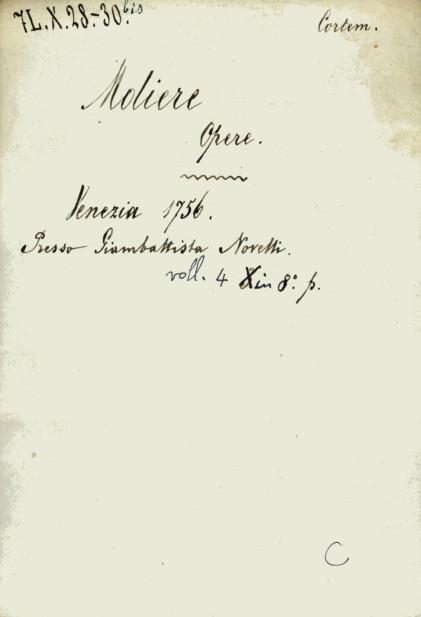 7L.X.28.-30.bis
Cortem.
Moliere
Opere.
Venezia 1756.
Presso Giambattista Novelli.
voll. 4 in 8.° p.
C